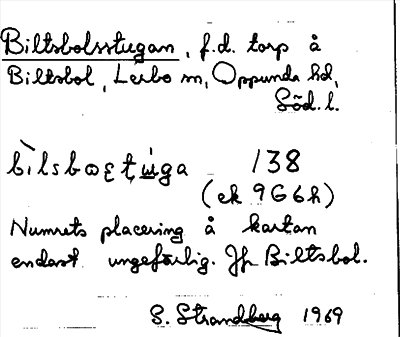 Biltsbolsstugan, f.d. torp å
Biltsbol, Lerbo sn, Oppunda hd,
Söd. l.
138
(ek 9G6h)
Numrets placering å kartan
endast ungefärlig. Jfr Biltsbol.
S. Strandberg 1969